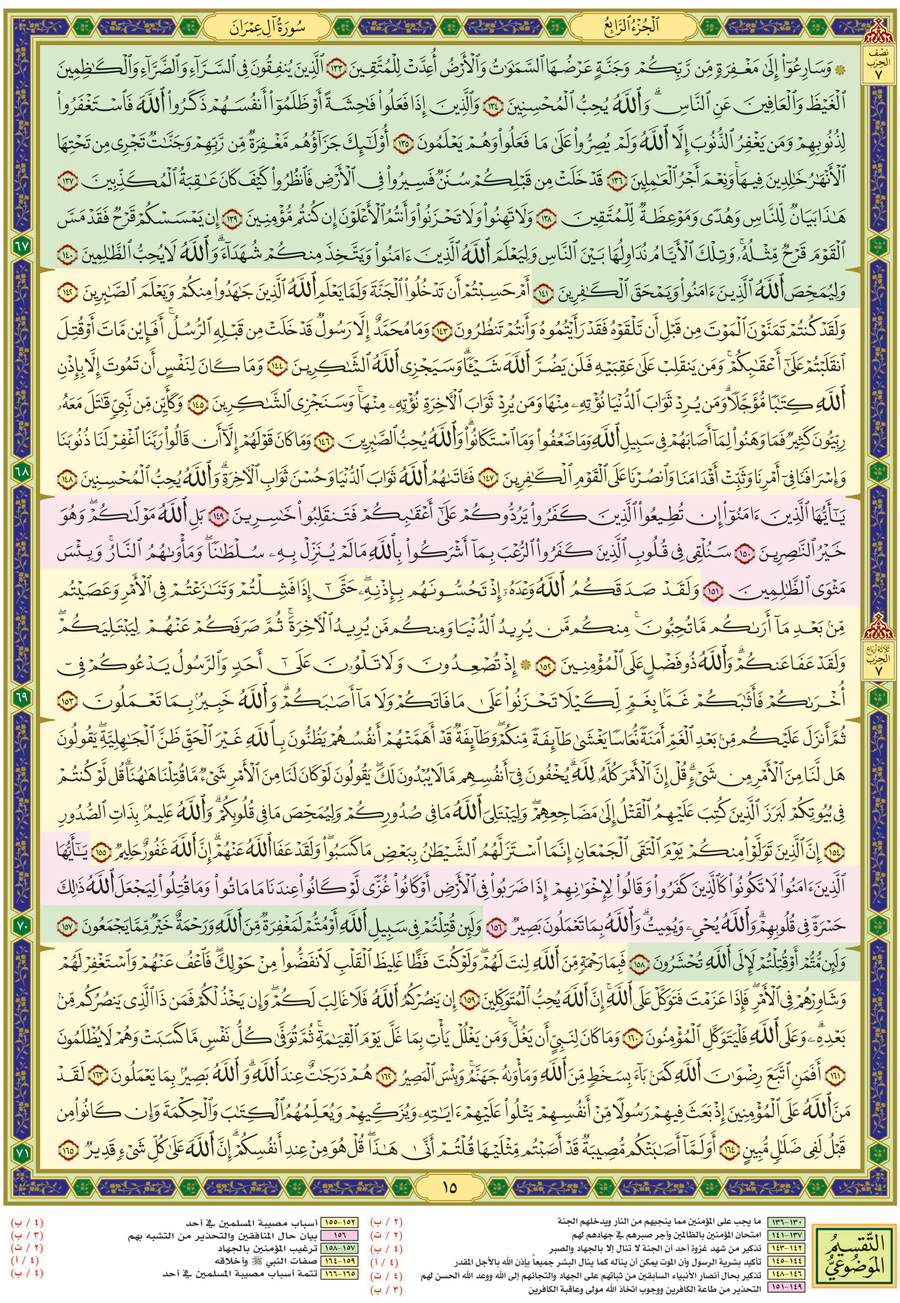 سُورَةُ آلِ عِمْرَانَ
الْجُزْءُ الرَّابِعُ
نصف
الحزب
٧
۞ وَسَارِعُوٓا۟ إِلَىٰ مَغْفِرَةٍ مِّن رَّبِّكُمْ وَجَنَّةٍ عَرْضُهَا ٱلسَّمَٰوَٰتُ وَٱلْأَرْضُ أُعِدَّتْ لِلْمُتَّقِينَ ١٣٣ ٱلَّذِينَ يُنفِقُونَ فِى ٱلسَّرَّآءِ وَٱلضَّرَّآءِ وَٱلْكَٰظِمِينَ
ٱلْغَيْظَ وَٱلْعَافِينَ عَنِ ٱلنَّاسِ ۗ وَٱللَّهُ يُحِبُّ ٱلْمُحْسِنِينَ ١٣٤ وَٱلَّذِينَ إِذَا فَعَلُوا۟ فَٰحِشَةً أَوْ ظَلَمُوٓا۟ أَنفُسَهُمْ ذَكَرُوا۟ ٱللَّهَ فَٱسْتَغْفَرُوا۟
لِذُنُوبِهِمْ وَمَن يَغْفِرُ ٱلذُّنُوبَ إِلَّا ٱللَّهُ وَلَمْ يُصِرُّوا۟ عَلَىٰ مَا فَعَلُوا۟ وَهُمْ يَعْلَمُونَ ١٣٥ أُو۟لَٰٓئِكَ جَزَآؤُهُم مَّغْفِرَةٌ مِّن رَّبِّهِمْ وَجَنَّٰتٌ تَجْرِى مِن تَحْتِهَا
ٱلْأَنْهَٰرُ خَٰلِدِينَ فِيهَا ۚ وَنِعْمَ أَجْرُ ٱلْعَٰمِلِينَ ١٣٦ قَدْ خَلَتْ مِن قَبْلِكُمْ سُنَنٌ فَسِيرُوا۟ فِى ٱلْأَرْضِ فَٱنظُرُوا۟ كَيْفَ كَانَ عَٰقِبَةُ ٱلْمُكَذِّبِينَ ١٣٧
هَٰذَا بَيَانٌ لِّلنَّاسِ وَهُدًى وَمَوْعِظَةٌ لِّلْمُتَّقِينَ ١٣٨ وَلَا تَهِنُوا۟ وَلَا تَحْزَنُوا۟ وَأَنتُمُ ٱلْأَعْلَوْنَ إِن كُنتُم مُّؤْمِنِينَ ١٣٩ إِن يَمْسَسْكُمْ قَرْحٌ فَقَدْ مَسَّ
ٱلْقَوْمَ قَرْحٌ مِّثْلُهُۥ ۚ وَتِلْكَ ٱلْأَيَّامُ نُدَاوِلُهَا بَيْنَ ٱلنَّاسِ وَلِيَعْلَمَ ٱللَّهُ ٱلَّذِينَ ءَامَنُوا۟ وَيَتَّخِذَ مِنكُمْ شُهَدَآءَ ۗ وَٱللَّهُ لَا يُحِبُّ ٱلظَّٰلِمِينَ ١٤٠
٦٧
وَلِيُمَحِّصَ ٱللَّهُ ٱلَّذِينَ ءَامَنُوا۟ وَيَمْحَقَ ٱلْكَٰفِرِينَ ١٤١ أَمْ حَسِبْتُمْ أَن تَدْخُلُوا۟ ٱلْجَنَّةَ وَلَمَّا يَعْلَمِ ٱللَّهُ ٱلَّذِينَ جَٰهَدُوا۟ مِنكُمْ وَيَعْلَمَ ٱلصَّٰبِرِينَ ١٤٢
وَلَقَدْ كُنتُمْ تَمَنَّوْنَ ٱلْمَوْتَ مِن قَبْلِ أَن تَلْقَوْهُ فَقَدْ رَأَيْتُمُوهُ وَأَنتُمْ تَنظُرُونَ ١٤٣ وَمَا مُحَمَّدٌ إِلَّا رَسُولٌ قَدْ خَلَتْ مِن قَبْلِهِ ٱلرُّسُلُ ۚ أَفَإِي۟ن مَّاتَ أَوْ قُتِلَ
ٱنقَلَبْتُمْ عَلَىٰٓ أَعْقَٰبِكُمْ ۚ وَمَن يَنقَلِبْ عَلَىٰ عَقِبَيْهِ فَلَن يَضُرَّ ٱللَّهَ شَيْـًٔا ۗ وَسَيَجْزِى ٱللَّهُ ٱلشَّٰكِرِينَ ١٤٤ وَمَا كَانَ لِنَفْسٍ أَن تَمُوتَ إِلَّا بِإِذْنِ
ٱللَّهِ كِتَٰبًا مُّؤَجَّلًا ۗ وَمَن يُرِدْ ثَوَابَ ٱلدُّنْيَا نُؤْتِهِۦ مِنْهَا وَمَن يُرِدْ ثَوَابَ ٱلْءَاخِرَةِ نُؤْتِهِۦ مِنْهَا ۚ وَسَنَجْزِى ٱلشَّٰكِرِينَ ١٤٥ وَكَأَيِّن مِّن نَّبِىٍّ قَٰتَلَ مَعَهُۥ
رِبِّيُّونَ كَثِيرٌ فَمَا وَهَنُوا۟ لِمَآ أَصَابَهُمْ فِى سَبِيلِ ٱللَّهِ وَمَا ضَعُفُوا۟ وَمَا ٱسْتَكَانُوا۟ ۗ وَٱللَّهُ يُحِبُّ ٱلصَّٰبِرِينَ ١٤٦ وَمَا كَانَ قَوْلَهُمْ إِلَّآ أَن قَالُوا۟ رَبَّنَا ٱغْفِرْ لَنَا ذُنُوبَنَا
٦٨
وَإِسْرَافَنَا فِىٓ أَمْرِنَا وَثَبِّتْ أَقْدَامَنَا وَٱنصُرْنَا عَلَى ٱلْقَوْمِ ٱلْكَٰفِرِينَ ١٤٧ فَـَٔاتَىٰهُمُ ٱللَّهُ ثَوَابَ ٱلدُّنْيَا وَحُسْنَ ثَوَابِ ٱلْءَاخِرَةِ ۗ وَٱللَّهُ يُحِبُّ ٱلْمُحْسِنِينَ ١٤٨
يَٰٓأَيُّهَا ٱلَّذِينَ ءَامَنُوٓا۟ إِن تُطِيعُوا۟ ٱلَّذِينَ كَفَرُوا۟ يَرُدُّوكُمْ عَلَىٰٓ أَعْقَٰبِكُمْ فَتَنقَلِبُوا۟ خَٰسِرِينَ ١٤٩ بَلِ ٱللَّهُ مَوْلَىٰكُمْ ۖ وَهُوَ
خَيْرُ ٱلنَّٰصِرِينَ ١٥٠ سَنُلْقِى فِى قُلُوبِ ٱلَّذِينَ كَفَرُوا۟ ٱلرُّعْبَ بِمَآ أَشْرَكُوا۟ بِٱللَّهِ مَا لَمْ يُنَزِّلْ بِهِۦ سُلْطَٰنًا ۖ وَمَأْوَىٰهُمُ ٱلنَّارُ ۚ وَبِئْسَ
مَثْوَى ٱلظَّٰلِمِينَ ١٥١ وَلَقَدْ صَدَقَكُمُ ٱللَّهُ وَعْدَهُۥٓ إِذْ تَحُسُّونَهُم بِإِذْنِهِۦ ۖ حَتَّىٰٓ إِذَا فَشِلْتُمْ وَتَنَٰزَعْتُمْ فِى ٱلْأَمْرِ وَعَصَيْتُم
مِّنۢ بَعْدِ مَآ أَرَىٰكُم مَّا تُحِبُّونَ ۚ مِنكُم مَّن يُرِيدُ ٱلدُّنْيَا وَمِنكُم مَّن يُرِيدُ ٱلْءَاخِرَةَ ۚ ثُمَّ صَرَفَكُمْ عَنْهُمْ لِيَبْتَلِيَكُمْ ۖ
ثلاثة أرباع
الحزب
٧
وَلَقَدْ عَفَا عَنكُمْ ۗ وَٱللَّهُ ذُو فَضْلٍ عَلَى ٱلْمُؤْمِنِينَ ١٥٢ ۞ إِذْ تُصْعِدُونَ وَلَا تَلْوُۥنَ عَلَىٰٓ أَحَدٍ وَٱلرَّسُولُ يَدْعُوكُمْ فِىٓ
٦٩
أُخْرَىٰكُمْ فَأَثَٰبَكُمْ غَمًّۢا بِغَمٍّ لِّكَيْلَا تَحْزَنُوا۟ عَلَىٰ مَا فَاتَكُمْ وَلَا مَآ أَصَٰبَكُمْ ۗ وَٱللَّهُ خَبِيرٌۢ بِمَا تَعْمَلُونَ ١٥٣
ثُمَّ أَنزَلَ عَلَيْكُم مِّنۢ بَعْدِ ٱلْغَمِّ أَمَنَةً نُّعَاسًا يَغْشَىٰ طَآئِفَةً مِّنكُمْ ۖ وَطَآئِفَةٌ قَدْ أَهَمَّتْهُمْ أَنفُسُهُمْ يَظُنُّونَ بِٱللَّهِ غَيْرَ ٱلْحَقِّ ظَنَّ ٱلْجَٰهِلِيَّةِ ۖ يَقُولُونَ
هَل لَّنَا مِنَ ٱلْأَمْرِ مِن شَىْءٍ ۗ قُلْ إِنَّ ٱلْأَمْرَ كُلَّهُۥ لِلَّهِ ۗ يُخْفُونَ فِىٓ أَنفُسِهِم مَّا لَا يُبْدُونَ لَكَ ۖ يَقُولُونَ لَوْ كَانَ لَنَا مِنَ ٱلْأَمْرِ شَىْءٌ مَّا قُتِلْنَا هَٰهُنَا ۗ قُل لَّوْ كُنتُمْ
فِى بُيُوتِكُمْ لَبَرَزَ ٱلَّذِينَ كُتِبَ عَلَيْهِمُ ٱلْقَتْلُ إِلَىٰ مَضَاجِعِهِمْ ۖ وَلِيَبْتَلِىَ ٱللَّهُ مَا فِى صُدُورِكُمْ وَلِيُمَحِّصَ مَا فِى قُلُوبِكُمْ ۗ وَٱللَّهُ عَلِيمٌۢ بِذَاتِ ٱلصُّدُورِ
١٥٤ إِنَّ ٱلَّذِينَ تَوَلَّوْا۟ مِنكُمْ يَوْمَ ٱلْتَقَى ٱلْجَمْعَانِ إِنَّمَا ٱسْتَزَلَّهُمُ ٱلشَّيْطَٰنُ بِبَعْضِ مَا كَسَبُوا۟ ۖ وَلَقَدْ عَفَا ٱللَّهُ عَنْهُمْ ۗ إِنَّ ٱللَّهَ غَفُورٌ حَلِيمٌ ١٥٥ يَٰٓأَيُّهَا
ٱلَّذِينَ ءَامَنُوا۟ لَا تَكُونُوا۟ كَٱلَّذِينَ كَفَرُوا۟ وَقَالُوا۟ لِإِخْوَٰنِهِمْ إِذَا ضَرَبُوا۟ فِى ٱلْأَرْضِ أَوْ كَانُوا۟ غُزًّى لَّوْ كَانُوا۟ عِندَنَا مَا مَاتُوا۟ وَمَا قُتِلُوا۟ لِيَجْعَلَ ٱللَّهُ ذَٰلِكَ
٧٠
حَسْرَةً فِى قُلُوبِهِمْ ۗ وَٱللَّهُ يُحْىِۦ وَيُمِيتُ ۗ وَٱللَّهُ بِمَا تَعْمَلُونَ بَصِيرٌ ١٥٦ وَلَئِن قُتِلْتُمْ فِى سَبِيلِ ٱللَّهِ أَوْ مُتُّمْ لَمَغْفِرَةٌ مِّنَ ٱللَّهِ وَرَحْمَةٌ خَيْرٌ مِّمَّا يَجْمَعُونَ ١٥٧
وَلَئِن مُّتُّمْ أَوْ قُتِلْتُمْ لَإِلَى ٱللَّهِ تُحْشَرُونَ ١٥٨ فَبِمَا رَحْمَةٍ مِّنَ ٱللَّهِ لِنتَ لَهُمْ ۖ وَلَوْ كُنتَ فَظًّا غَلِيظَ ٱلْقَلْبِ لَٱنفَضُّوا۟ مِنْ حَوْلِكَ ۖ فَٱعْفُ عَنْهُمْ وَٱسْتَغْفِرْ لَهُمْ
وَشَاوِرْهُمْ فِى ٱلْأَمْرِ ۖ فَإِذَا عَزَمْتَ فَتَوَكَّلْ عَلَى ٱللَّهِ ۚ إِنَّ ٱللَّهَ يُحِبُّ ٱلْمُتَوَكِّلِينَ ١٥٩ إِن يَنصُرْكُمُ ٱللَّهُ فَلَا غَالِبَ لَكُمْ ۖ وَإِن يَخْذُلْكُمْ فَمَن ذَا ٱلَّذِى يَنصُرُكُم مِّنۢ
بَعْدِهِۦ ۗ وَعَلَى ٱللَّهِ فَلْيَتَوَكَّلِ ٱلْمُؤْمِنُونَ ١٦٠ وَمَا كَانَ لِنَبِىٍّ أَن يَغُلَّ ۚ وَمَن يَغْلُلْ يَأْتِ بِمَا غَلَّ يَوْمَ ٱلْقِيَٰمَةِ ۚ ثُمَّ تُوَفَّىٰ كُلُّ نَفْسٍ مَّا كَسَبَتْ وَهُمْ لَا يُظْلَمُونَ
١٦١ أَفَمَنِ ٱتَّبَعَ رِضْوَٰنَ ٱللَّهِ كَمَنۢ بَآءَ بِسَخَطٍ مِّنَ ٱللَّهِ وَمَأْوَىٰهُ جَهَنَّمُ ۚ وَبِئْسَ ٱلْمَصِيرُ ١٦٢ هُمْ دَرَجَٰتٌ عِندَ ٱللَّهِ ۗ وَٱللَّهُ بَصِيرٌۢ بِمَا يَعْمَلُونَ ١٦٣ لَقَدْ
مَنَّ ٱللَّهُ عَلَى ٱلْمُؤْمِنِينَ إِذْ بَعَثَ فِيهِمْ رَسُولًا مِّنْ أَنفُسِهِمْ يَتْلُوا۟ عَلَيْهِمْ ءَايَٰتِهِۦ وَيُزَكِّيهِمْ وَيُعَلِّمُهُمُ ٱلْكِتَٰبَ وَٱلْحِكْمَةَ وَإِن كَانُوا۟ مِن
٧١
قَبْلُ لَفِى ضَلَٰلٍ مُّبِينٍ ١٦٤ أَوَلَمَّآ أَصَٰبَتْكُم مُّصِيبَةٌ قَدْ أَصَبْتُم مِّثْلَيْهَا قُلْتُمْ أَنَّىٰ هَٰذَا ۖ قُلْ هُوَ مِنْ عِندِ أَنفُسِكُمْ ۗ إِنَّ ٱللَّهَ عَلَىٰ كُلِّ شَىْءٍ قَدِيرٌ ١٦٥
١٥
التَّقسِيمُ
المَوضُوعِيُّ
١٣٠-١٣٦ ما يجب على المؤمنين مما ينجيهم من النار ويدخلهم الجنة (٢ / ب)
١٣٧-١٤١ امتحان المؤمنين بالظالمين وأجر صبرهم في جهادهم لهم (٢ / ت)
١٤٢-١٤٣ تذكير من شهد غزوة أحد أن الجنة لا تنال إلا بالجهاد والصبر (٤ / ب)
١٤٤-١٤٥ تأكيد بشرية الرسول وأن الموت يمكن أن يناله كما ينال البشر جميعاً بإذن الله بالأجل المقدر (٤ / أ)
١٤٦-١٤٨ تذكير بحال أنصار الأنبياء السابقين من ثباتهم على الجهاد والتجائهم إلى الله ووعد الله الحسن لهم (٤ / ت)
١٤٩-١٥١ التحذير من طاعة الكافرين ووجوب اتخاذ الله مولى وعاقبة الكافرين (٣ / ب)
١٥٢-١٥٥ أسباب مصيبة المسلمين في أحد (٤ / ب)
١٥٦ بيان حال المنافقين والتحذير من التشبه بهم (٣ / ب)
١٥٧-١٥٨ ترغيب المؤمنين بالجهاد (٢ / ت)
١٥٩-١٦٤ صفات النبي ﷺ وأخلاقه (٤ / أ)
١٦٥-١٦٦ تتمة أسباب مصيبة المسلمين في أحد (٤ / ب)